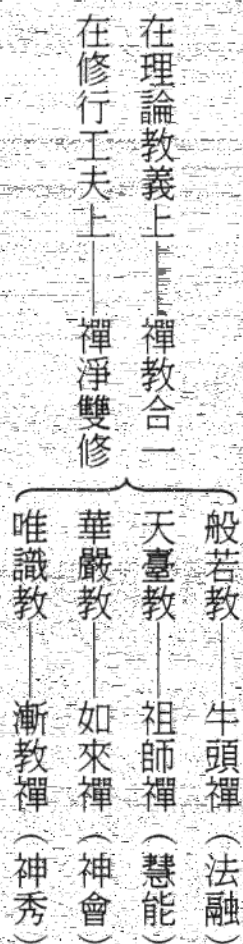 在理論教義上——禪教合一
在修行工夫上——禪淨雙修
般若教——牛頭禪（法融）
天臺教——祖師禪（慧能）
華嚴教——如來禪（神會）
唯識教——漸教禪（神秀）